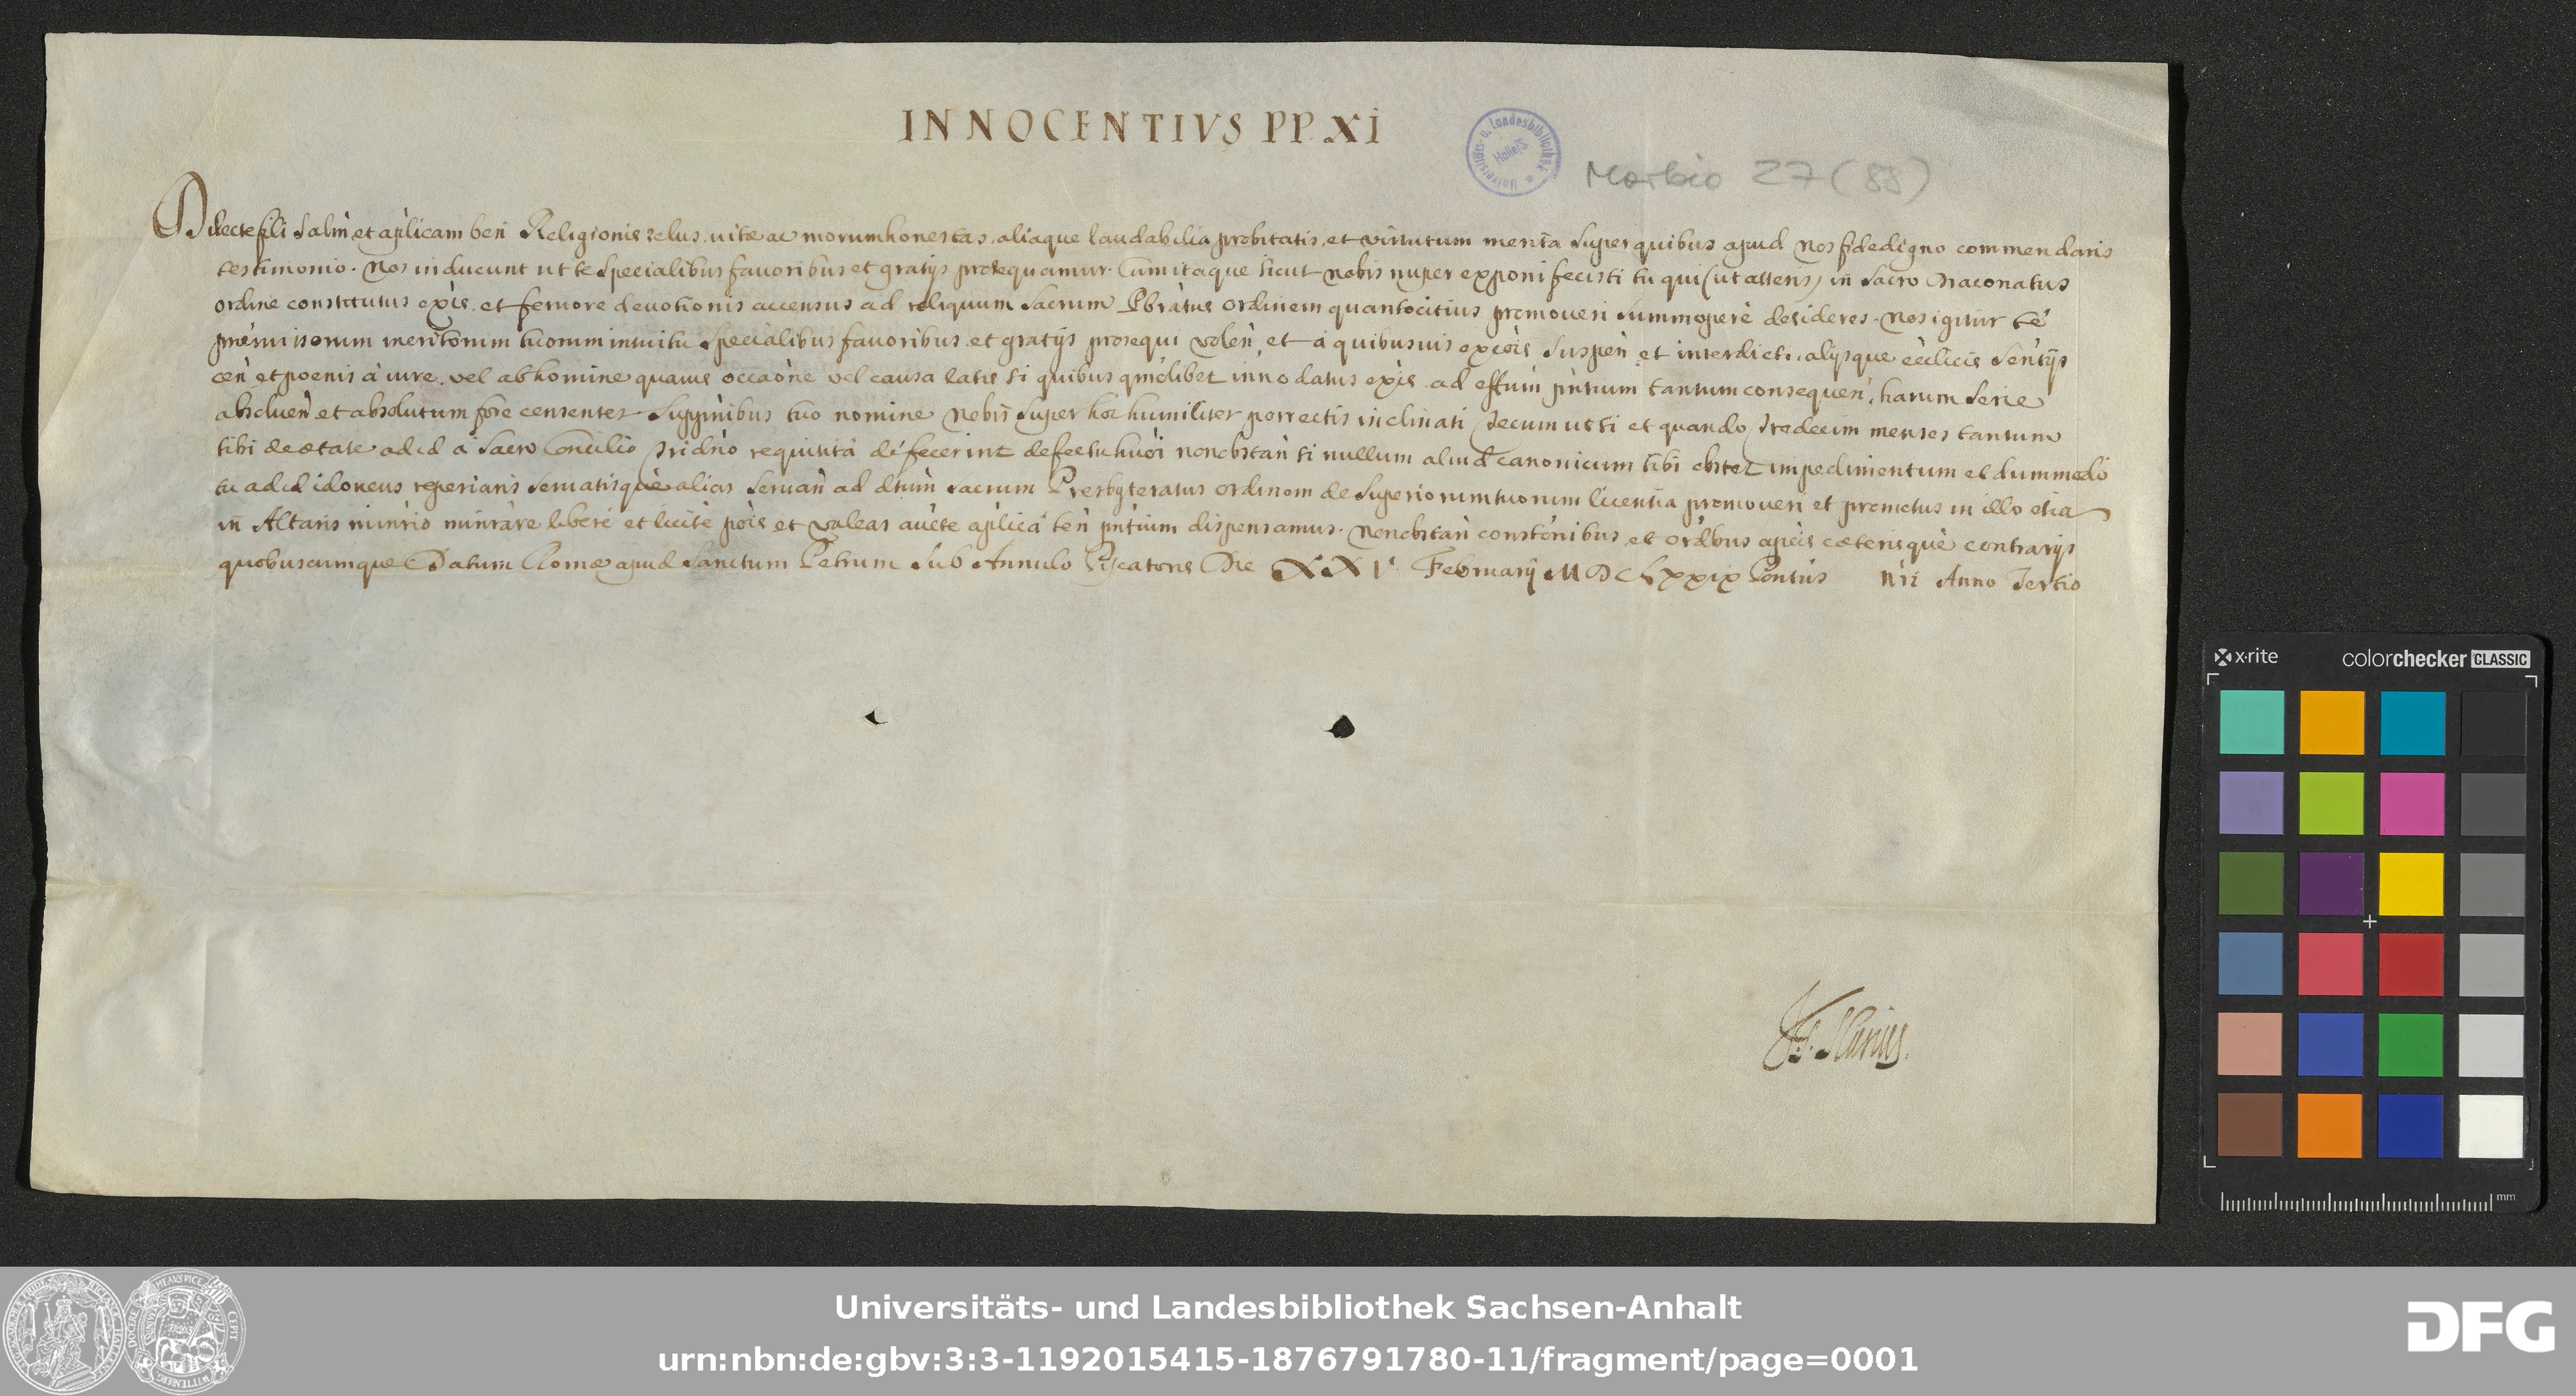 INNOCENTIVS PP. XI
Universitäts- u. Landesbibliothek
Halle/S
Morbio 27 (88)
Dilecte fili Salm̀ et ap̀licam ben̄ Religionis zelus, uitæ ac morum honestas, aliaque laudabilia probitatis, et virtutum merita super quibus apud Nos fidedigno commendaris
testimonio. Nos inducunt ut te specialibus fauoribus et gratijs prosequamur. Cum itaque sicut nobis nuper exponi fecisti tu qui (ut asseris) in Sacro Diaconatus
ordine constitutus exìs, et feruore deuotionis accensus ad reliquum sacrum Pbràtus ordinem quantocitius promoueri summoperè desideres. Nos igitur te
præmissorum meritorum tuorum intuitu specialibus fauoribus, et gratijs prosequi volen̄, et à quibusuis excòis suspen̄ et interdicti, alijsque ecc̀licis sen̄tijs
cen̄ et poenis à iure, vel ab homine quauis occaòne vel causa latis si quibus qm̀òlibet innodatus exìs ad eff̄um pn̄tium tantum consequen̄, harum serie
absoluen̄ et absolutum fore censentes suppn̄ibus tuo nomine nobis super hoc humiliter porrectis inclinati Tecum ut si et quando Tredecim menses tantum
tibi de ætate ad id a Sacro Concilio Tridn̄o requisità defecerint defectu huò̀i non obstan̄ si nullum aliud canonicum tibi obstet impedimentum et dummodo
tu ad id idoneus reperiaris seruatisquè alias seruan̄ ad dtùm sacrum Presbyteratus ordinem de superiorum tuorum licentia promoueri et promotus in illo etia
in Altaris min̄rio min̄ràre liberè et licitè pòis et valeas auc̀te ap̀licâ ten̄ pn̄tium dispensamus. Non obstan̄ constònibus, et ordb̀us ap̀cis cæterisquè contrarijs
quibuscumque Datum Romæ apud Sanctum Petrum sub Annulo Piscatoris Die XXV Februarij MDCLXXIX Pontùs nr̀i Anno Tertio
colorchecker CLASSIC
x·rite
mm
Universitäts- und Landesbibliothek Sachsen-Anhalt
urn:nbn:de:gbv:3:3-1192015415-1876791780-11/fragment/page=0001
DFG